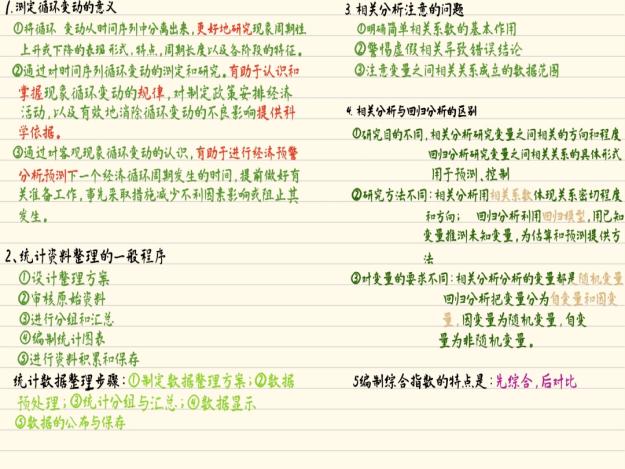 1.测定循环变动的意义
①将循环 变动从时间序列中分离出来,更好地研究现象周期性
上升或下降的表现形式,特点,周期长度以及各阶段的特征。
②通过对时间序列循环变动的测定和研究。有助于认识和
掌握现象循环变动的规律,对制定政策安排经济
活动,以及有效地消除循环变动的不良影响提供科
学依据。
③通过对客观现象循环变动的认识,有助于进行经济预警
分析预测下一个经济循环周期发生的时间,提前做好有
关准备工作,事先采取措施减少不利因素影响或阻止其
发生。
2、统计资料整理的一般程序
①设计整理方案
②审核原始资料
③进行分组和汇总
④编制统计图表
⑤进行资料积累和保存
统计数据整理步骤:①制定数据整理方案;②数据
预处理;③统计分组与汇总;④数据显示
⑤数据的公布与保存
3.相关分析注意的问题
①明确简单相关系数的基本作用
②警惕虚假相关导致错误结论
③注意变量之间相关关系成立的数据范围
4.相关分析与回归分析的区别
①研究目的不同,相关分析研究变量之间相关的方向和程度
回归分析研究变量之间相关关系的具体形式
用于预测.控制
②研究方法不同:相关分析用相关系数体现关系密切程度
和方向; 回归分析利用回归模型,用已知
变量推测未知变量,为估算和预测提供方
法
③对变量的要求不同:相关分析分析的变量都是随机变量
回归分析把变量分为自变量和因变
量,因变量为随机变量,自变
量为非随机变量。
5编制综合指数的特点是:先综合,后对比